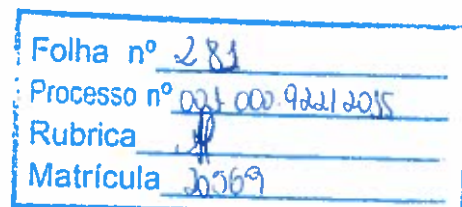 Folha nº 281
Processo nº 001 000.922/2015
Rubrica
Matrícula 20569